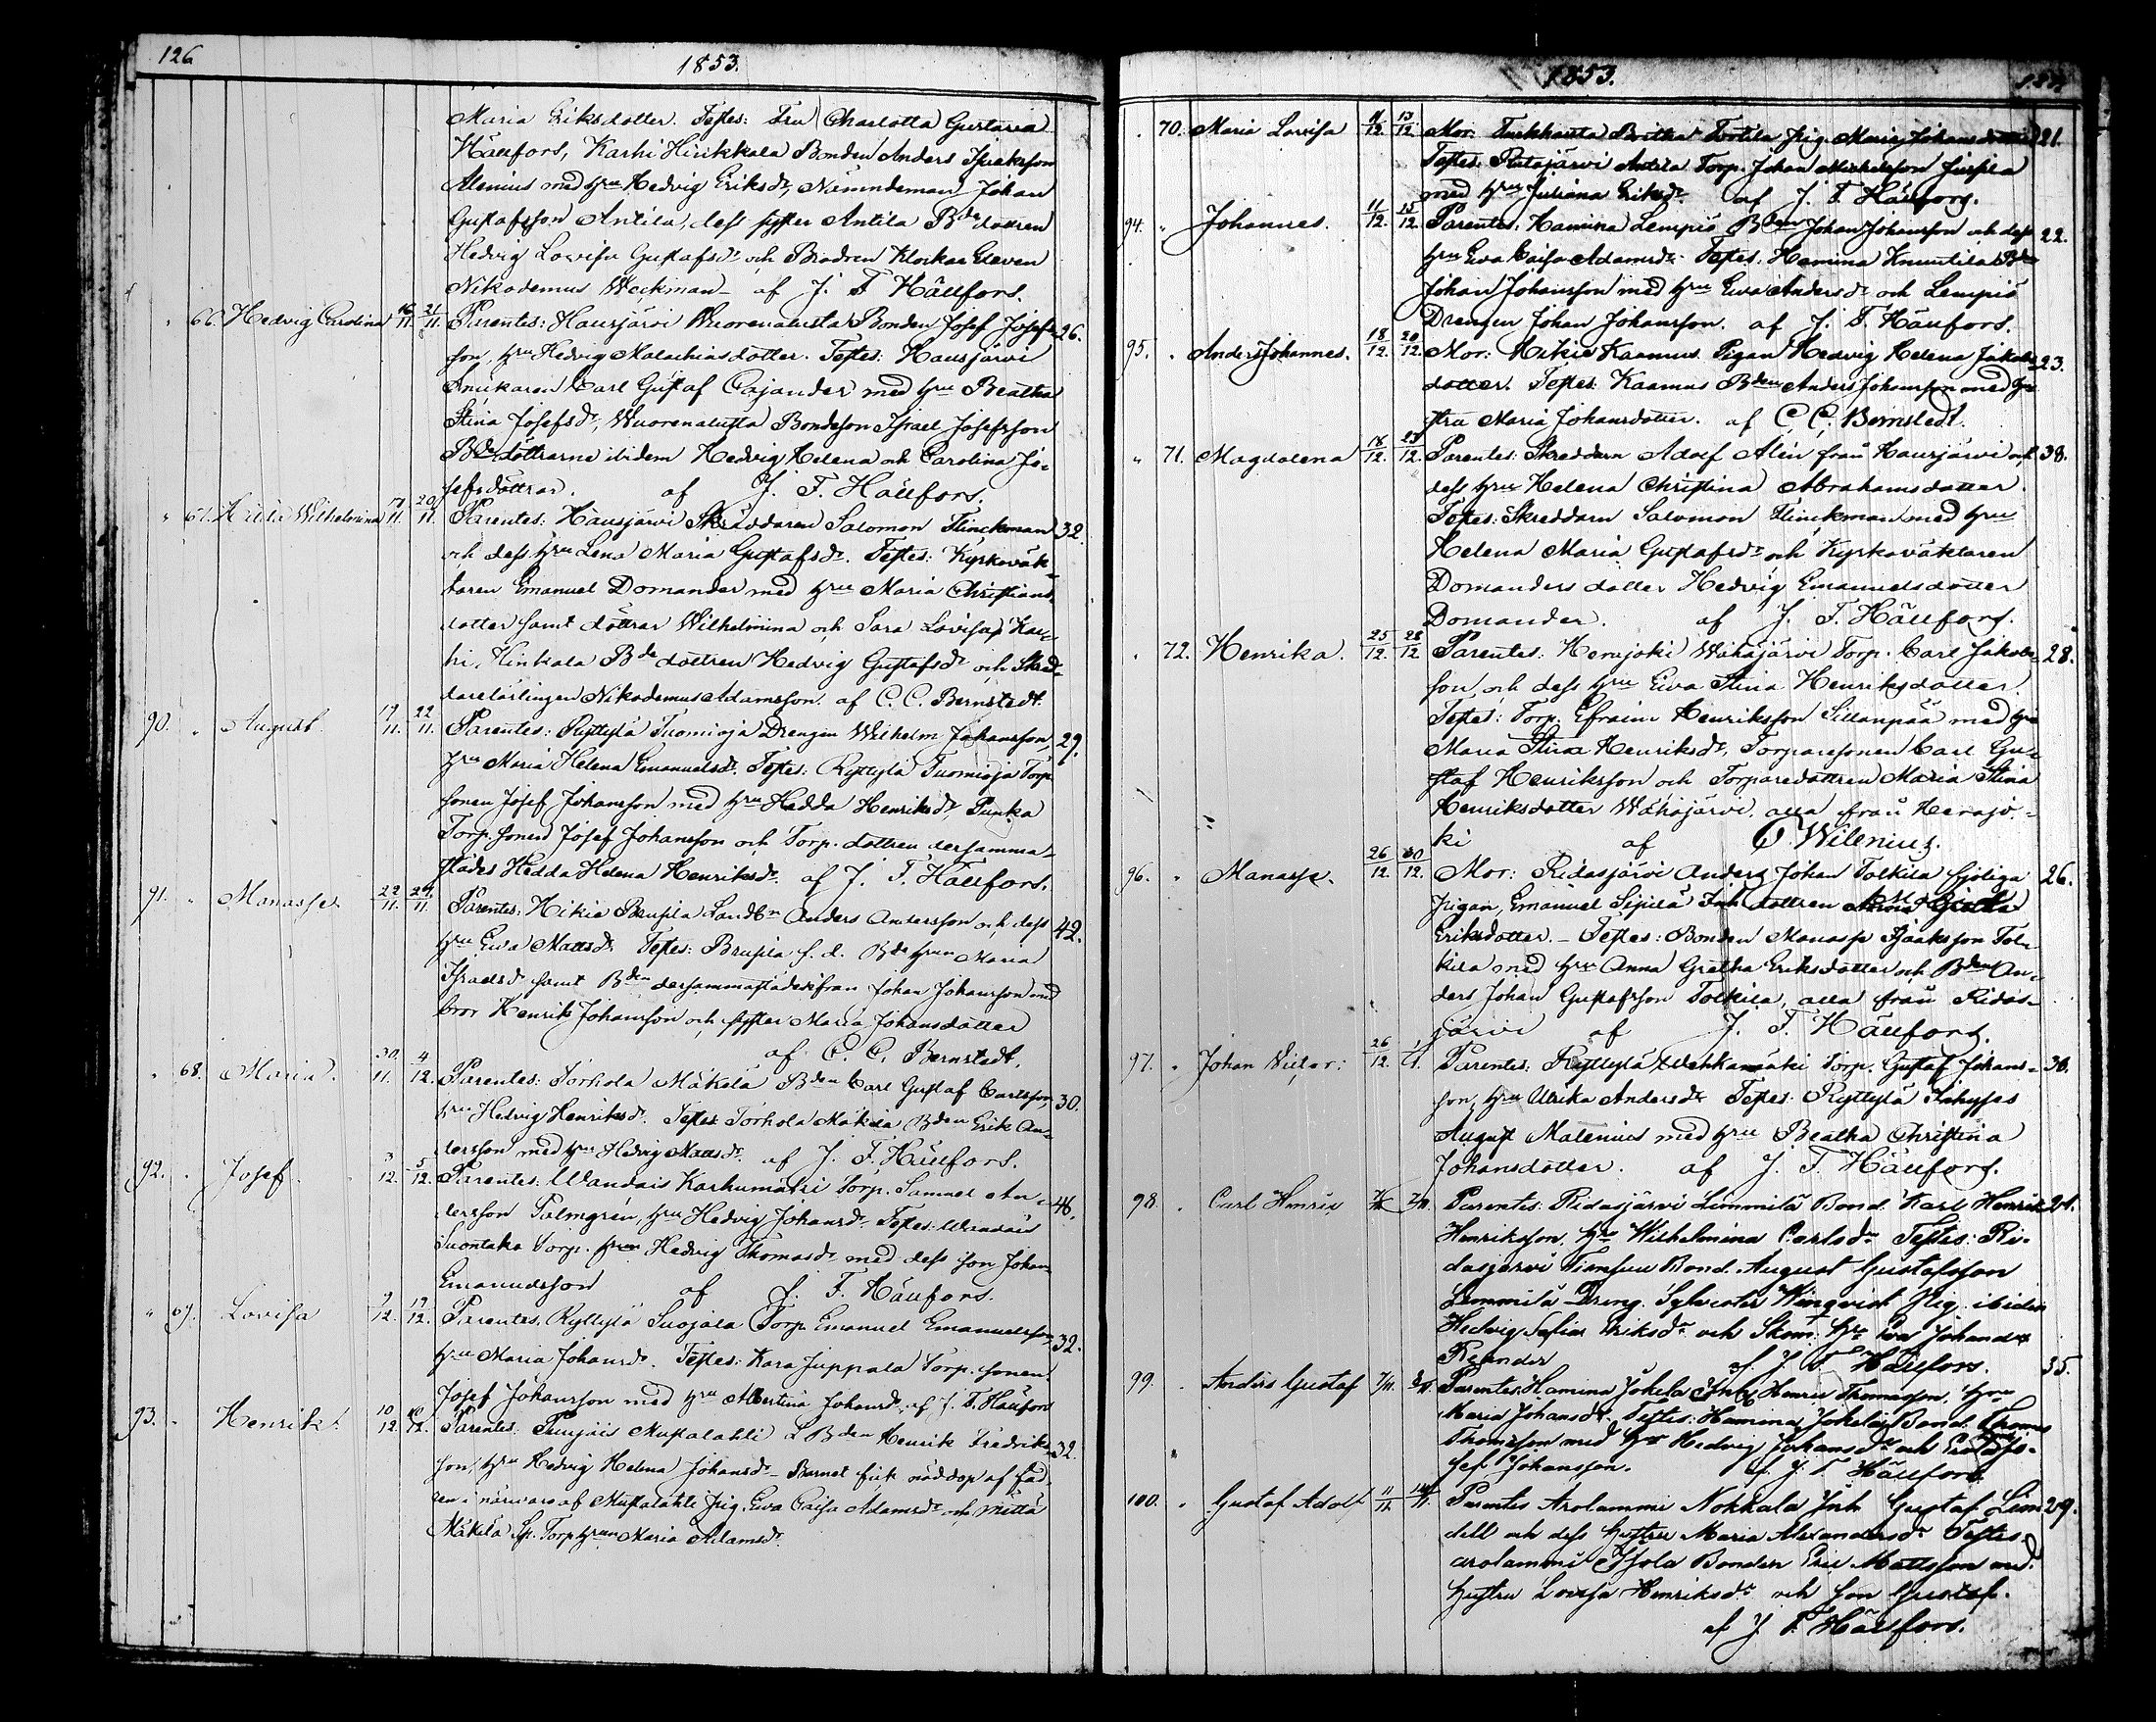 126
1853.
Maria Eriksdotter. Testes: Fru Charlotta Gustava
Hällfors, Karhi Hinkkala Bonden Anders Isaksson
Alenius med hru Hedvig Eriksdr, Nämndeman Johan
Gustafsson Antila, dess syster Antila Bdedottren
Hedvig Lovisa Gustafsdr och Brodren Klockar Eleven
Nikodemus Weckman - af J. F. Hällfors.
" 66. Hedvig Carolina 16/11. 21/11. Parentes: Hausjärvi Wuorenalusta Bonden Josef Josefs- 26.
son, hru Hedvig Malachiasdotter. Testes: Hausjärvi
Carl Gustaf Cajander med hru Beatha
Stina Josefsdr, Wuorenalusta Bondeson Israel Josefsson
Bdedöttrarne ibidem Hedvig Helena och Carolina Jo-
sefsdöttrar. af J. F. Hällfors.
" 67. Wilhelmina 17/11. 20/11. Parentes: Hausjärvi Skräddaren Salomon Flinckman 32.
och dess hru Lena Maria Gustafsdr. Testes: Kyrkoväk-
taren Emanuel Domander med hru Maria Christians-
dotter samt döttrar Wilhelmina och Sara Lovisa, Kar-
hi, Hinkala Bde dottren Hedvig Gustafsdr och Skräd-
darelärlingen Nikodemus Adamsson. af C. C. Bernstedt.
90. " August. 17/11. 22/11. Parentes: Ryttylä Tuomioja Drengen Wilhelm Johansson, 29.
hru Maria Helena Emanuelsdr. Testes: Ryttylä Tuomioja Torp.
sonen Josef Johansson med hru Hedda Henriksdr, Punka
Torp. sonen Josef Johansson och Torp. dottren dersamma-
städes Hedda Helena Henriksdr. af J. F. Hällfors.
91. " Manasse 22/11. 27/11. Parentes: Hikiä Landbn Anders Andersson och dess 42.
hru Eva Mattsdr. Testes: Bde hrun Maria
Israelsdr samt Bden dersammastädesifrån Johan Johansson med
bror Henrik Johansson och syster Maria Johansdotter
af C. C. Bernstedt.
" 68. Maria. 30/11. 4/12. Parentes: Torhola Mäkelä Bden Carl Gustaf Carlsson, 30.
hru Hedvig Henriksdr. Testes Torhola Mäkelä Bden Erik An-
dersson med hru Hedvig Mattsdr. af J. F. Hällfors.
92. " Josef. 3/12. 5/12. Parentes: Wandais Karhumäki Torp. Samuel An- 46.
dersson Palmgren, hru Hedvig Johansdr. Testes:
Suontaka Torp. hrun Hedvig Thomasdr med dess son Johan
Emanuelsson af J. F. Hällfors.
" 69. Lovisa 9/12. 17/12. Parentes. Ryttylä Suojala Torp. Emanuel Emanuelsson, 32.
hru Maria Johansdr. Testes: Kara Juppala Torp. sonen
Josef Johansson med hru Albertina Johansdr. af J. F. Hällfors
93. " Henrik. 10/12. Parentes. Mustalahti LBden Henrik Fredriks- 32.
son, hru Hedvig Helena Johansdr - Barnet fick nöddop af fad-
ren i närvaro af Mustalahti pig. Eva Caisa Adamsdr och
Mäkelä Torp hrun Maria Adamsdr.
1853.
" 70. Maria Lovisa 11/12 13/12. Mor: Turkhauta Tertila pig. Maria Johansdotter 21.
Testes: Antila Torp. Johan Michelsson
med hru Juliana Eriksdr. af J. F. Hällfors.
94. " Johannes. 11/12. 15/12. Parentes: Hamina Lempiö Bden Johan Johansson och dess 22.
hru Eva Caisa Adamsdr. Testes: Hamina Knuutila Bden
Johan Johansson med hru Eva Andersdr och Lempiö
Drengen Johan Johansson. af J. F. Hällfors.
95. " Anders Johannes. 18/12. 20/12. Mor: Hikiä Kaamus Pigan Hedvig Helena Jakobs- 23.
dotter. Testes: Kaamus Bden Anders Johansson med hu-
stru Maria Johansdotter. af C. C. Bernstedt.
" 71. Magdalena 18/12. 23/12. Parentes: Skreddarn Adolf Alén från Hausjärvi och 38.
dess hru Helena Christina Abrahamsdotter.
Testes: Skreddarn Salomon Flinckman med hru
Helena Maria Gustafsdr, och Kyrkoväktaren
Domanders dotter Hedvig Emanuelsdotter
Domander. af J. F. Hällfors.
" 72. Henrika. 25/12. 28/12 Parentes: Herajoki Wähäjärvi Torp. Carl Jakobs- 28.
son, och dess hru Eva Stina Henriksdotter.
Testes: Torp. Efraim Henriksson Sillanpää med hru
Maria Stina Henriksdr, Torparesonen Carl Gu-
staf Henriksson och Torparedottren Maria Stina
Henriksdotter Wähäjärvi, alla från Herajo-
ki af Wilenius.
96. " Manasse. 26/12. 30/12. Mor: Ridasjärvi Anders Johan Tolkila 26.
pigan, Emanuel Sipilä Inh. dottren
Eriksdotter. - Testes: Bonden Manasse Isaaksson Tol-
kila med hru Anna Gretha Eriksdotter och Bden An-
ders Johan Gustafsson Tolkila, alla från Ridas-
järvi af J. F. Hällfors.
97. " Johan Victor. 26/12. 1/1. Parentes: Ryttylä Torp. Gustaf Johans- 30.
son, hru Ulrika Andersdr Testes: Ryttylä Inhyses
August Malenius med hru Beatha Christina
Johansdotter. af J. F. Hällfors.
98. " Carl Henric Parentes: Ridasjärvi Lemmilä Bond. Karl Henrik 21.
Henriksson, hru Wilhelmina Carlsdr Testes: Ri-
dasjärvi Bond. August Gustafsson
Lemmilä Dreng. Sylvester Winqvist Pig. ibidem
Hedvig Sofia Eriksdr och Skom. hru Eva Johansdr
af J. F. Hällfors.
99. " Anders Gustaf Parentes. Hamina Jokela Inh. Henric Thomasson, hru 35.
Maria Johansdr. Testes: Hamina Jokela Bond. Thomas
Thomasson med hru Hedvig Johansdr och Jo-
sef Johansson. af J. F. Hällfors.
100. " Gustaf Adolf 11/11. Parentes Arolammi Nokkala Inh. Gustaf Lin- 29.
dell och dess hustru Maria Alexandersdr Testes.
arolammi Isola Bonden Eric Mattsson med
hustru Lovisa Henriksdr och son Gustaf.
af J. F. Hällfors.